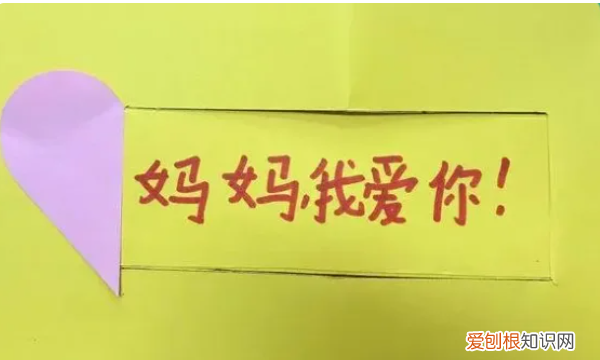 妈妈,我爱你!
爱刨根知识网